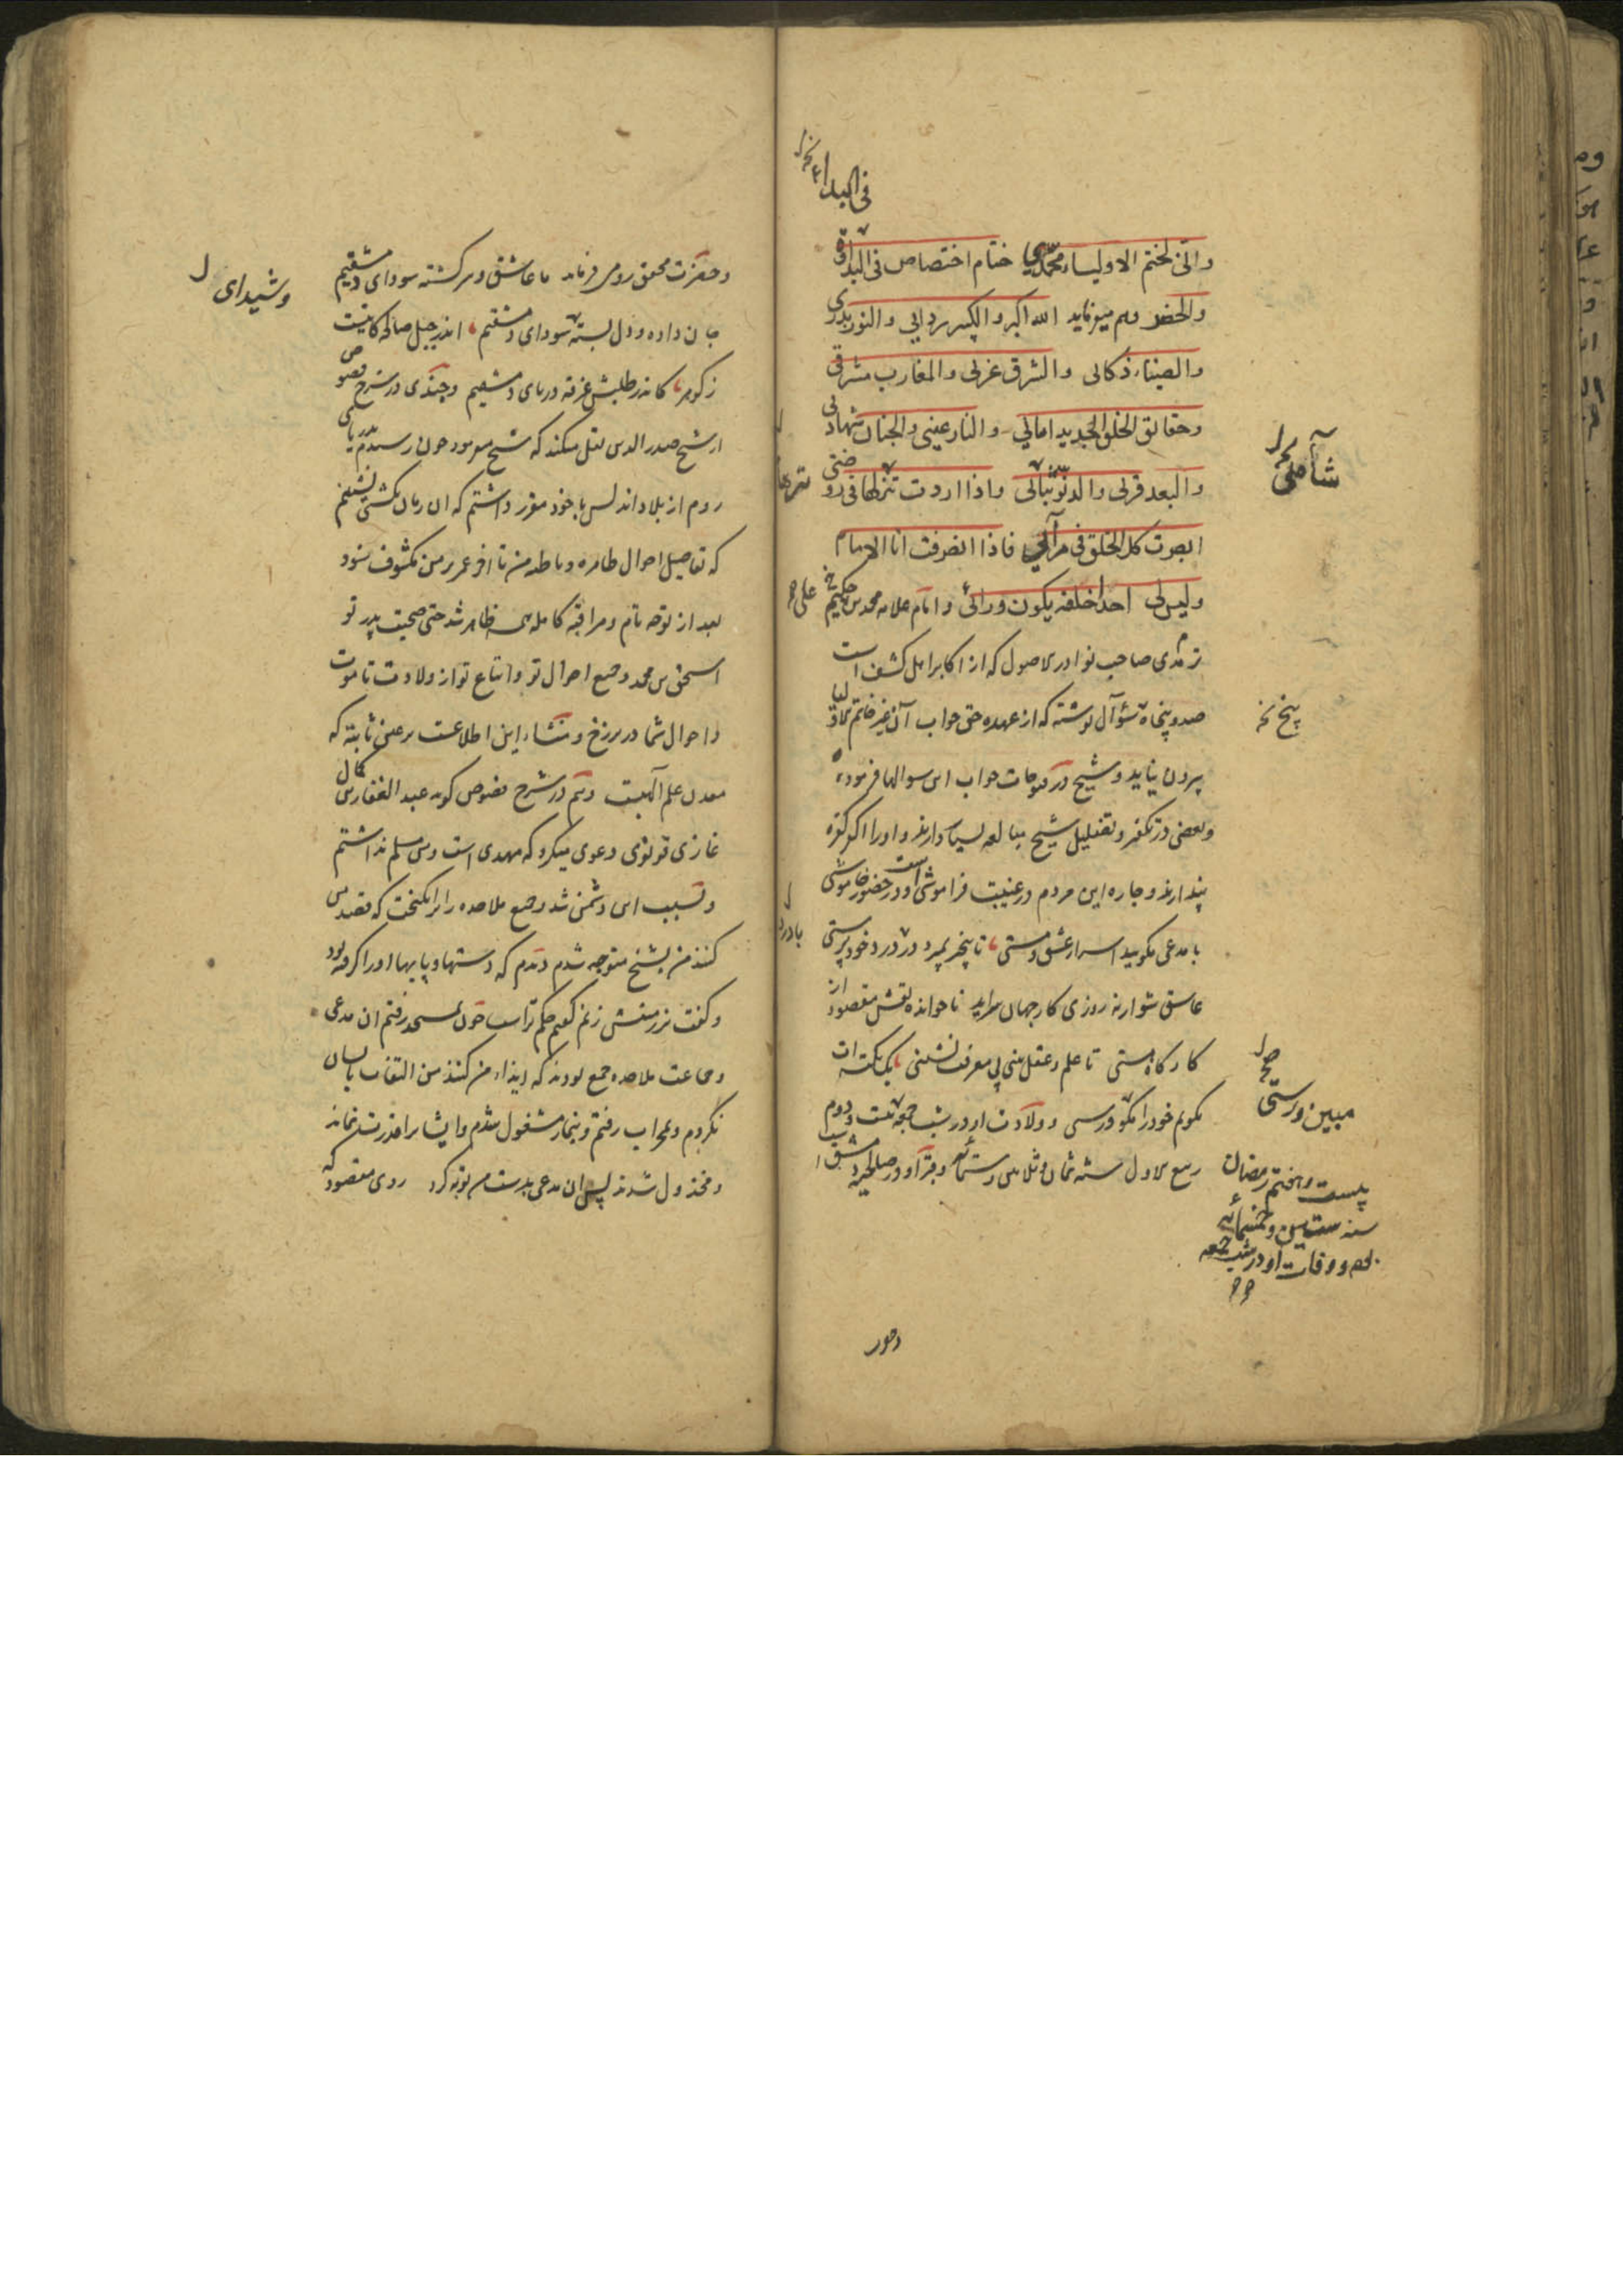 فی البداء
وانی لختم الاولیاء محمدی ختام اختصاص فی البداوة
والحضر وهم میفرماید الله اکبر والکبیر ردایی والنور بدری
والضیاء ذکائی والشرق غربی والمغارب مشرقی
وحقائق الخلق الجدید امائی والنار عینی والجنان شهادتی
شآمی
والبعد قربی والدنو تنائی واذا اردت تنزها فی روضتی
ابصرت کل الخلق فی مرآئی فاذا انصرفت انا الامام
ولیس لی احد اخلفه یکون ورائی وامام علامه محمد بن علی حکیم
ترمذی صاحب نوادر الاصول که از اکابر اهل کشف است
صد و پنجاه سؤال نوشته که از عهده حق جواب آن غیر خاتم الاولیا
پنج نخ
بیرون نیاید و شیخ در فتوحات جواب این سوالها فرموده
وبعضی در تکفیر و تضلیل شیخ مبالغه بسیار دارند و او را اکفر کفره
پندارند و چاره این مردم در غیبت فراموشی است و در حضور خاموشی
با مدعی مگویید اسرار عشق و مستی تا بیخبر بمیرد در درد خودپرستی
عاشق شو ارنه روزی کار جهان سرآید ناخوانده نقش مقصود از
کارگاه هستی تا علم و عقل بینی بی معرفت نشینی یک نکته ات
بگویم خود را مبین و رستی و ولادت او در شب
بیست و هفتم رمضان
سنه ستین و خمسمائه
بود و وفات او در شب جمعه
جمعه بیست و دوم
ربیع الاول سنه ثمان و ثلاثین و ستمائه وقبر او در صالحیه دمشق است
وحضرت محقق رومی فرماید ما عاشق و سرگشته سودای دمشقیم
وشیدای
جان داده و دل بسته سودای دمشقیم اندر جبل صالحه کانیست
ز گوهر کاندر طلبش غرقه دریای دمشقیم وجندی در شرح فصوص
از شیخ صدر الدین نقل میکند که شیخ فرمود چون رسیدم بدریای
روم از بلاد اندلس با خود مقرر داشتم که ان زمان بکشتی نشینم
که تفاصیل احوال ظاهره و باطنه من تا آخر عمر بر من مکشوف شود
بعد از توجه تام و مراقبه کامله همه ظاهر شد حتی صحبت پدر تو
اسحق بن محمد و جمیع احوال تو و اتباع تو از ولادت تا موت
واحوال شما در برزخ و منشاء این اطلاعست بر عین ثابته که
معدن علم آلهیست وهم در شرح فصوص گوید عبد الغفار
غازی قونوی دعوی میکرد که مهدی است ومن مسلم نداشتم
وبسبب این دشمن شد وجمع ملاحده را برانگیخت که قصد من
کنند من بشیخ متوجه شدم دیدم که دستها و پایها او را گرفته بود
وگفت بر زمینش زنم گفتم حکم تراست چون بمسجد رفتم ان مدعی
وجماعت ملاحده جمع بودند که ایذاء من کنند من التفات بایشان
نکردم وبمحراب رفتم و بنماز مشغول شدم وایشانرا قدرت نماند
ومخذول شدند پس ان مدعی بدست من توبه کرد روی مقصود که